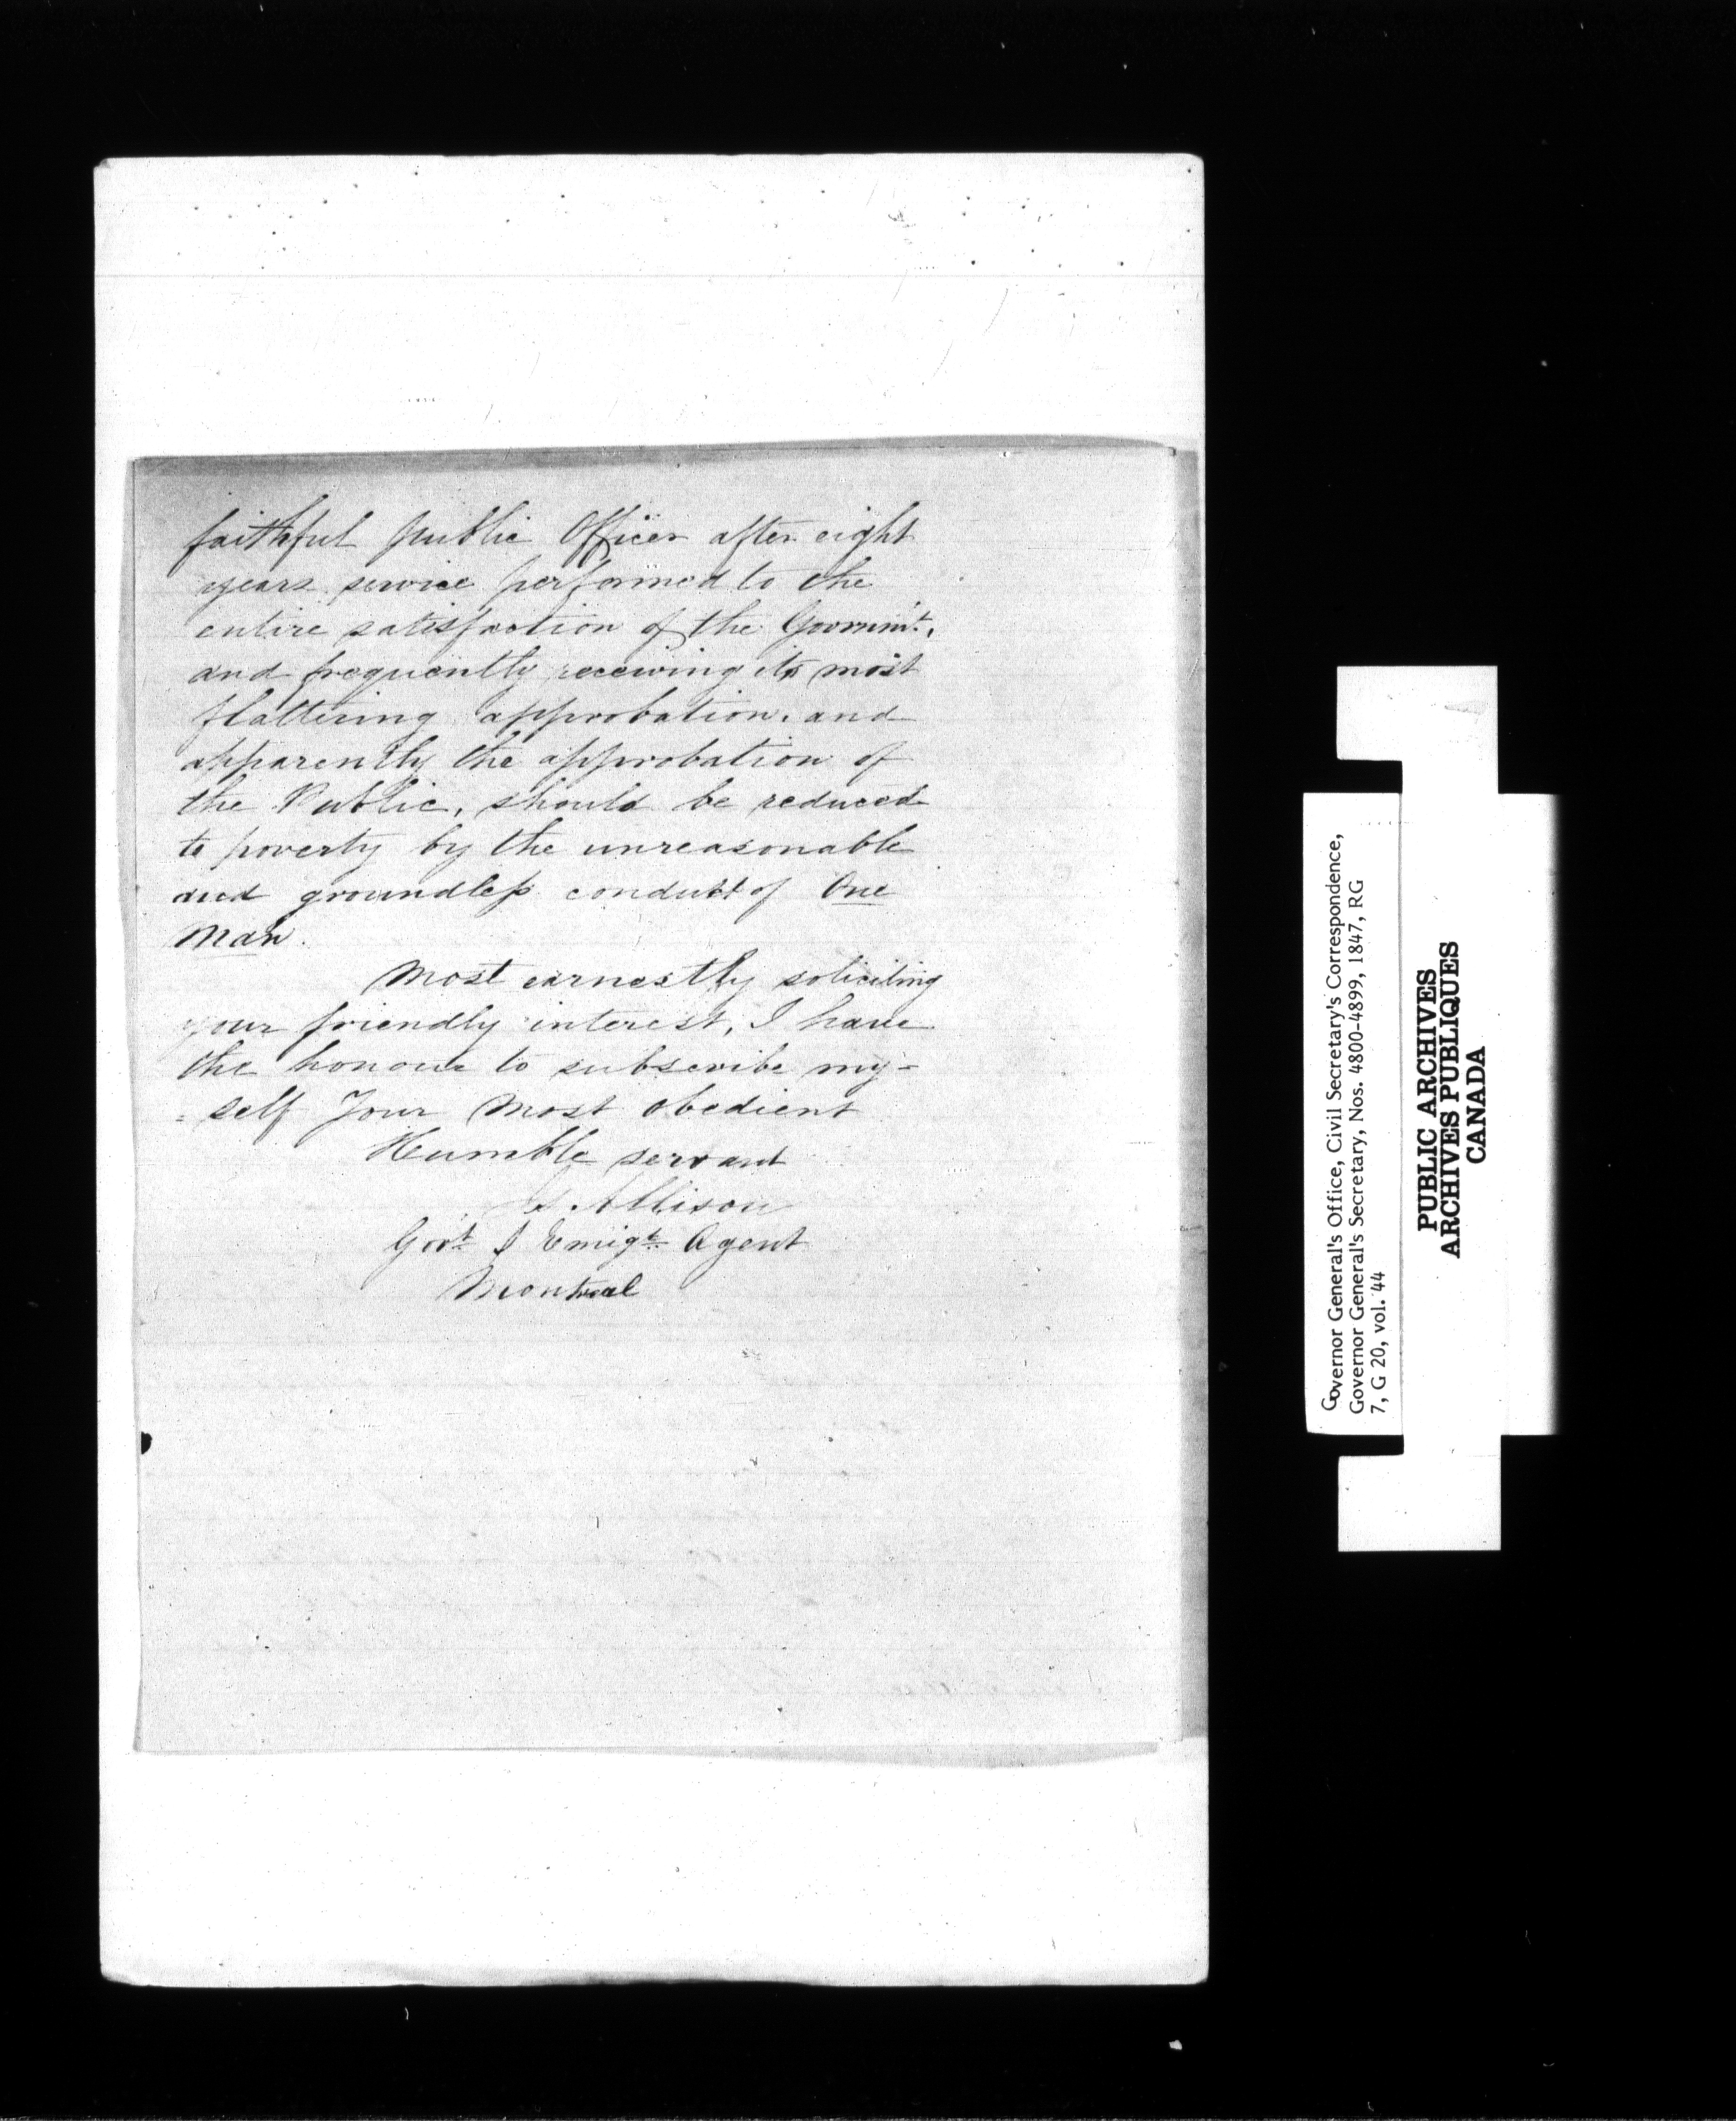 faithful Public Officer after eight
years service performed to the
entire satisfaction of the Governm't.
and frequently receiving its most
flattering approbation, and
apparently the approbation of
the Public, should be reduced
to poverty by the unreasonable
and groundless conduct of One
Man.
Most earnestly soliciting
your friendly interest, I have
the honour to subscribe my-
=self Your Most obedient
Humble servant
Allison
Govt Emigt Agent
Montreal
Governor General's Office, Civil Secretary's Correspondence,
Governor General's Secretary, Nos. 4800-4899, 1847, RG
7, G 20, vol. 44
PUBLIC ARCHIVES
ARCHIVES PUBLIQUES
CANADA